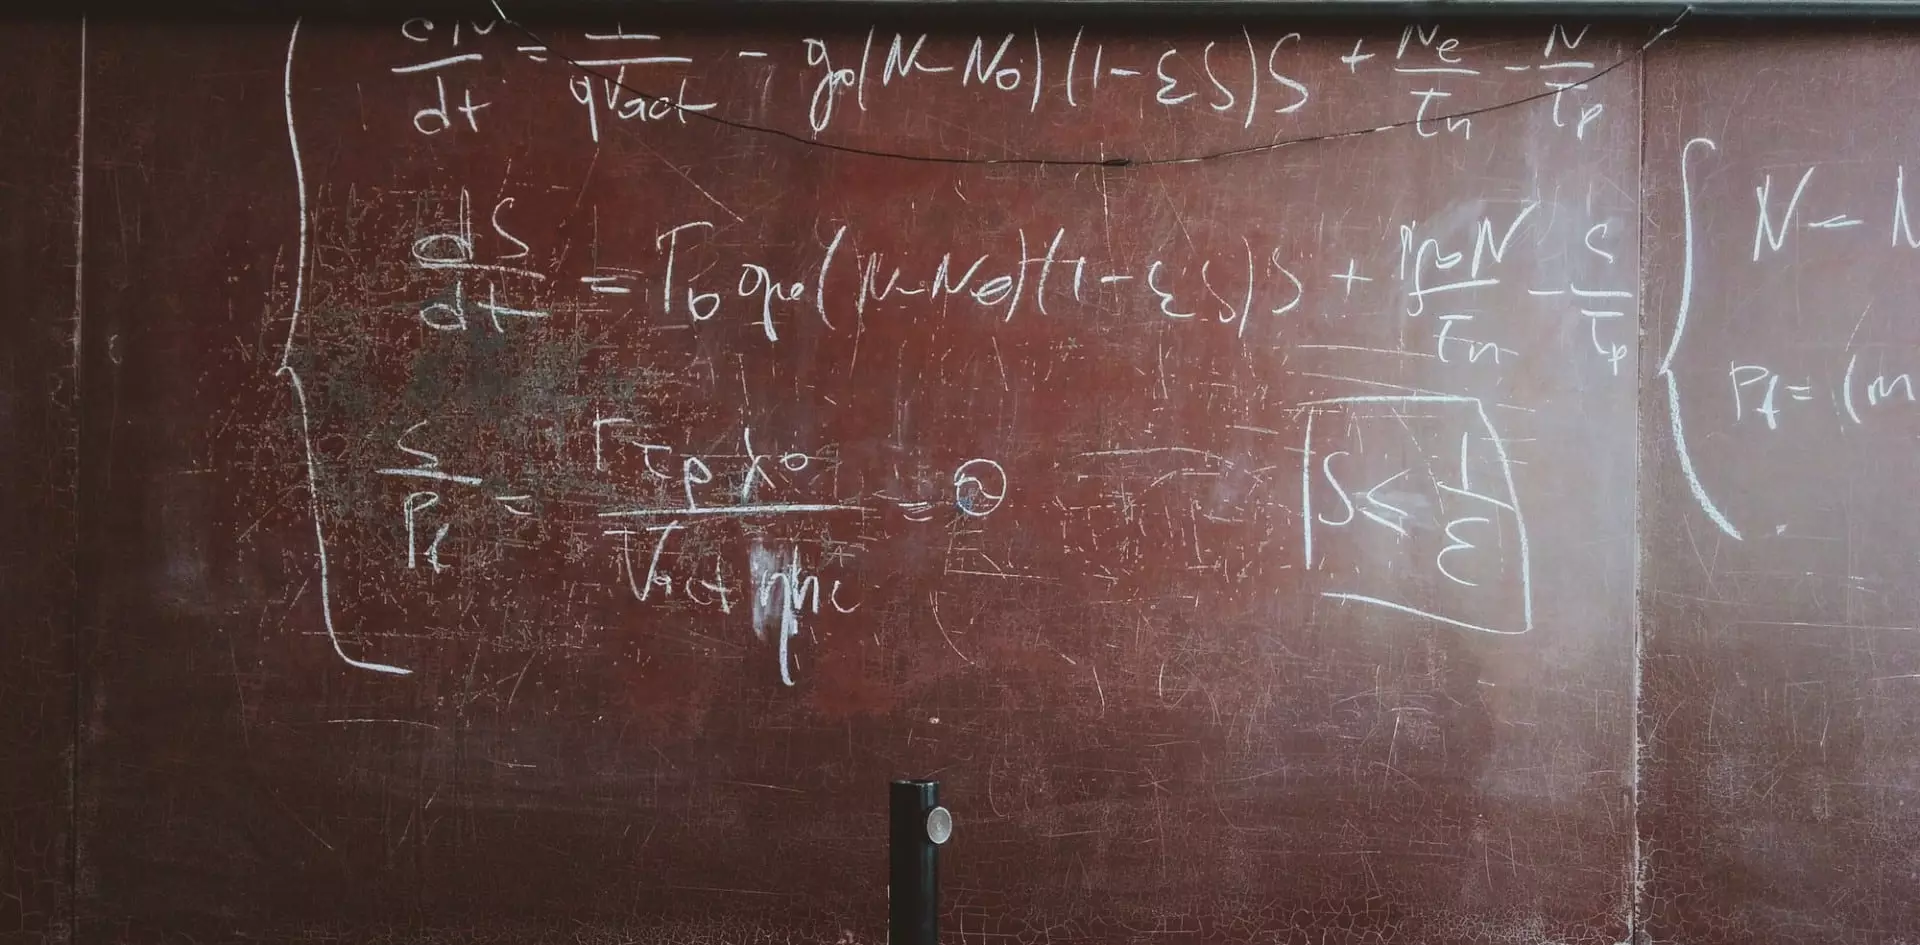 dN/dt = I/qVact - g₀(N - N₀)(1 - εS)S + Ne/τn - N/τp
dS/dt = Γ₀ g₀(N - N₀)(1 - εS)S + N/τn - S/τp
S/Pf = Γτpλ₀/Vact ηhc =
S ≤ 1/ε
N - N
Pf = (m